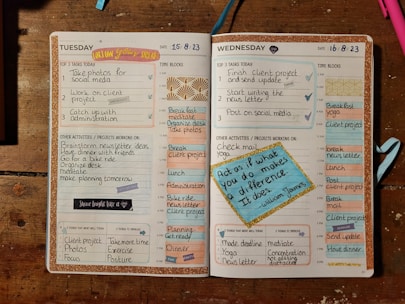 TUESDAY
DATE 15·8·23
TOP 3 TASKS TODAY
1 Take photos for
social media
2 Work on client
project
3 Catch up with
administration
OTHER ACTIVITIES / PROJECTS WORKING ON:
Brainstorm newsletter ideas
Have dinner with friends
Go for a bike ride
Organise desk
meditate
make planning tomorrow
Client project
Photos
Focus
Take more time
Exercise
Positive
TIME BLOCKS
Breakfast
meditate
Organise desk
Take photos
Break
Client project
Lunch
Administration
Bike ride
newsletter
Client project
Planning
Get ready
Dinner
WEDNESDAY
DATE 16·8·23
TOP 3 TASKS TODAY
1 Finish client project
and send update
2 Start writing the
newsletter
3 Post on social media
OTHER ACTIVITIES / PROJECTS WORKING ON:
Check mail
yoga
Act as if what
you do makes
a difference.
It does.
William James
Made deadline
Yoga
Newsletter
meditate
Concentration
TIME BLOCKS
Breakfast
yoga
Client project
Break
newsletter
Lunch
Post
Client project
Break
Client
project
Send update
Have dinner